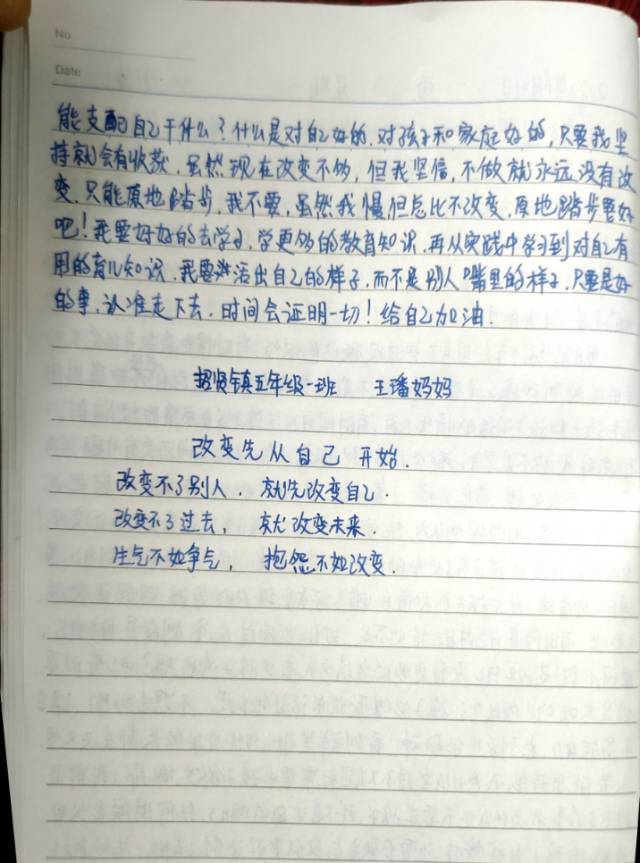 No.
Date
能支配自己干什么？什么是对自己好的.对孩子和家庭好的,只要我坚
持就会有收获.虽然现在改变不够,但我坚信,不做就永远没有改
变.只能原地踏步.我不要.虽然我慢但总比不改变.原地踏步要好
吧!我要好好的去学习.学更多的教育知识.再从实践中学习到对自己有
用的育儿知识.我要活出自己的样子.而不是别人嘴里的样子.只要是好
的事.认准走下去.时间会证明一切!给自己加油.
超贤镇五年级一班 王璠妈妈
改变先从自己开始.
改变不了别人.就先改变自己.
改变不了过去,就改变未来.
生气不如争气,抱怨不如改变.